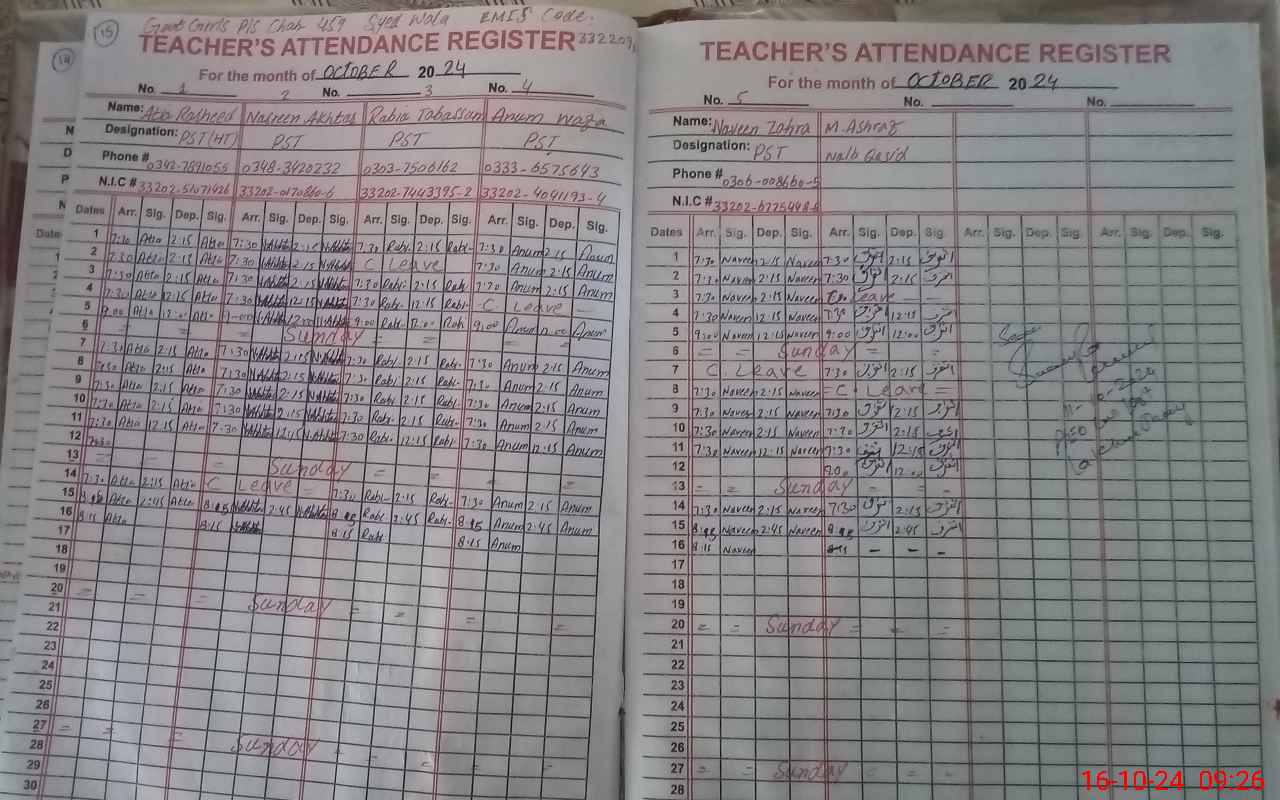 15
Govt Girls P/S Chak 459 Syed Wala EMIS Code:
TEACHER'S ATTENDANCE REGISTER 332209
For the month of OCTOBER 2024
No. 1 2 No. 3 No. 4
Name: Atia Rasheed Nasreen Akhtar Rabia Tabassum Anum
Designation: PST(HT) PST PST PST
Phone # 0348-3420232 0303-7506162 0333-6575643
N.I.C # 33202-7443395-2 33202-4041193-4
Dates Arr. Sig. Dep. Sig. Arr. Sig. Dep. Sig. Arr. Sig. Dep. Sig. Arr. Sig. Dep. Sig.
1 7:30 Atia 2:15 Atia 7:30 2:15 7:30 Rabi- 2:15 Rabi- 7:30 Anum 2:15 Anum
2 7:30 Atia 2:15 Atia 7:30 2:15 C Leave 7:30 Anum 2:15 Anum
3 7:30 Atia 2:15 Atia 7:30 2:15 7:30 Rabi- 2:15 Rabi- 7:30 Anum 2:15 Anum
4 7:30 Atia 12:15 Atia 7:30 12:15 7:30 Rabi- 12:15 Rabi- C Leave
5 9:00 Atia 12:00 Atia 9:00 12:00 9:00 Rabi- 12:00 Rabi 9:00 Anum 12:00 Anum
6 Sunday
7 7:30 Atia 2:15 Atia 7:30 2:15 7:30 Rabi- 2:15 Rabi- 7:30 Anum 2:15 Anum
8 7:30 Atia 2:15 Atia 7:30 2:15 7:30 Rabi 2:15 Rabi- 7:30 Anum 2:15 Anum
9 7:30 Atia 2:15 Atia 7:30 2:15 7:30 Rabi- 2:15 Rabi- 7:30 Anum 2:15 Anum
10 7:30 Atia 2:15 Atia 7:30 2:15 7:30 Rabi- 2:15 Rabi- 7:30 Anum 2:15 Anum
11 7:30 Atia 12:15 Atia 7:30 12:15 7:30 Rabi- 12:15 Rabi- 7:30 Anum 12:15 Anum
12
13 Sunday
14 7:30 Atia 2:15 Atia C Leave 7:30 Rabi- 2:15 Rabi- 7:30 Anum 2:15 Anum
15 Atia 2:45 Atia 8:15 2:45 8:15 Rabi- 2:45 Rabi- 8:15 Anum 2:45 Anum
16 8:15 Atia 8:15 8:15 Rabi 8:15 Anum
17
18
19
20 Sunday
21
22
23
24
25
26
27 Sunday
28
29
30
14
TEACHER'S ATTENDANCE REGISTER
For the month of OCTOBER 2024
No. 5 No. No.
Name: Naveen Zahra M.Ashraf
Designation: PST Naib Qasid
Phone # 0306-008660-5
N.I.C #
Dates Arr. Sig. Dep. Sig. Arr. Sig. Dep. Sig. Arr. Sig. Dep. Sig. Arr. Sig. Dep. Sig.
1 7:30 Naveen 2:15 Naveen 7:30 اشرف 2:15 اشرف
2 7:30 Naveen 2:15 Naveen 7:30 اشرف 2:15 اشرف
3 7:30 Naveen 2:15 Naveen Leave
4 7:30 Naveen 12:15 Naveen 7:30 اشرف 12:15 اشرف
5 9:00 Naveen 12:15 Naveen 9:00 اشرف 12:00 اشرف
6 Sunday
7 C. Leave 7:30 اشرف 2:15 اشرف
8 7:30 Naveen 2:15 Naveen C Leave
9 7:30 Naveen 2:15 Naveen 7:30 اشرف 2:15 اشرف
10 7:30 Naveen 2:15 Naveen 7:30 اشرف 2:15 اشرف
11 7:30 Naveen 12:15 Naveen 7:30 اشرف 12:15 اشرف
12 9:00 اشرف 12:00 اشرف
13 Sunday
14 7:30 Naveen 2:15 Naveen 7:30 اشرف 2:15 اشرف
15 8:15 Naveen 2:45 Naveen 8:15 اشرف 2:45 اشرف
16 8:15 Naveen
17
18
19
20 Sunday
21
22
23
24
25
26
27 Sunday
28
Seen
11-10-2024
16-10-24 09:26